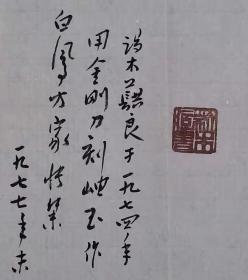 端木蕻良于一九七四年
用金刚刀刻岫玉作
白凤方家
一九七七年末